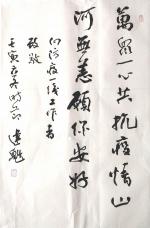 萬眾一心共抗疫情山
河無恙願你安好
向防疫一線工作者
致敬
壬寅